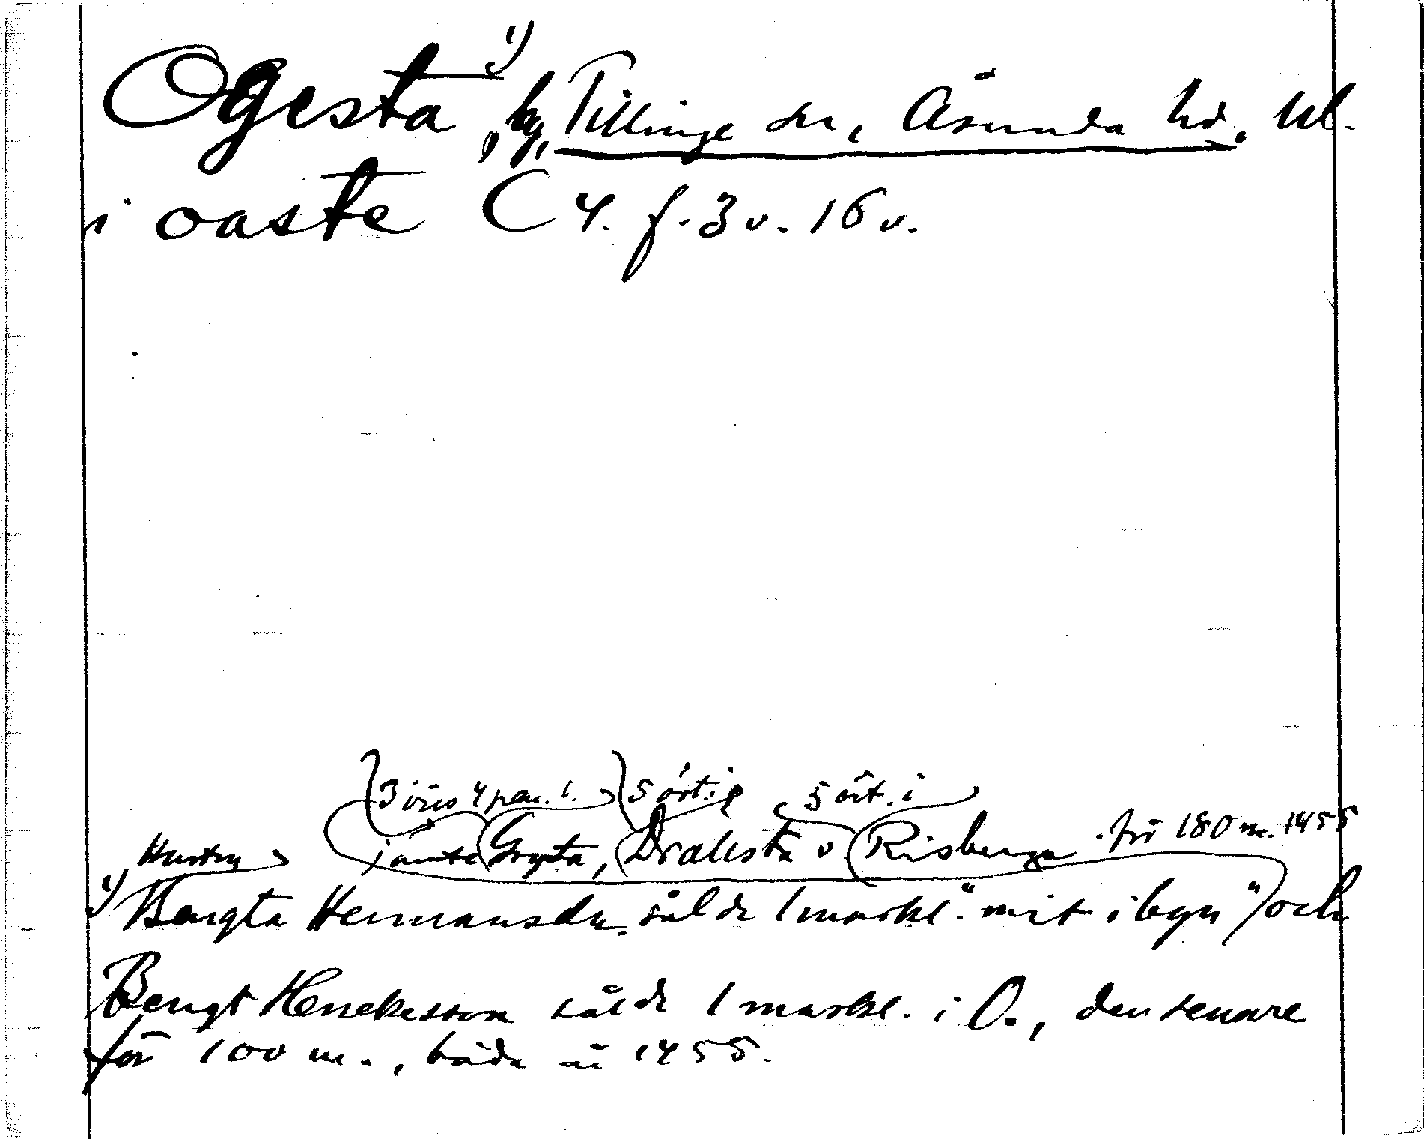 Ogesta 1), by, Tillinge sn, Åsunda hd, Upl.
i oaste C 4. f. 3 v. 16 v.
3 öres 4 pen. l. 5 ört. i 5 ört. i
jämte Grysta, Dralista o Risberga för 180 m. 1455
Hustru
1) Bengta Hermansdr. sålde 1 markl. "mit i byn" och
Bengt Henekesson sålde 1 markl. i O., den senare
för 100 m., båda år 1455.